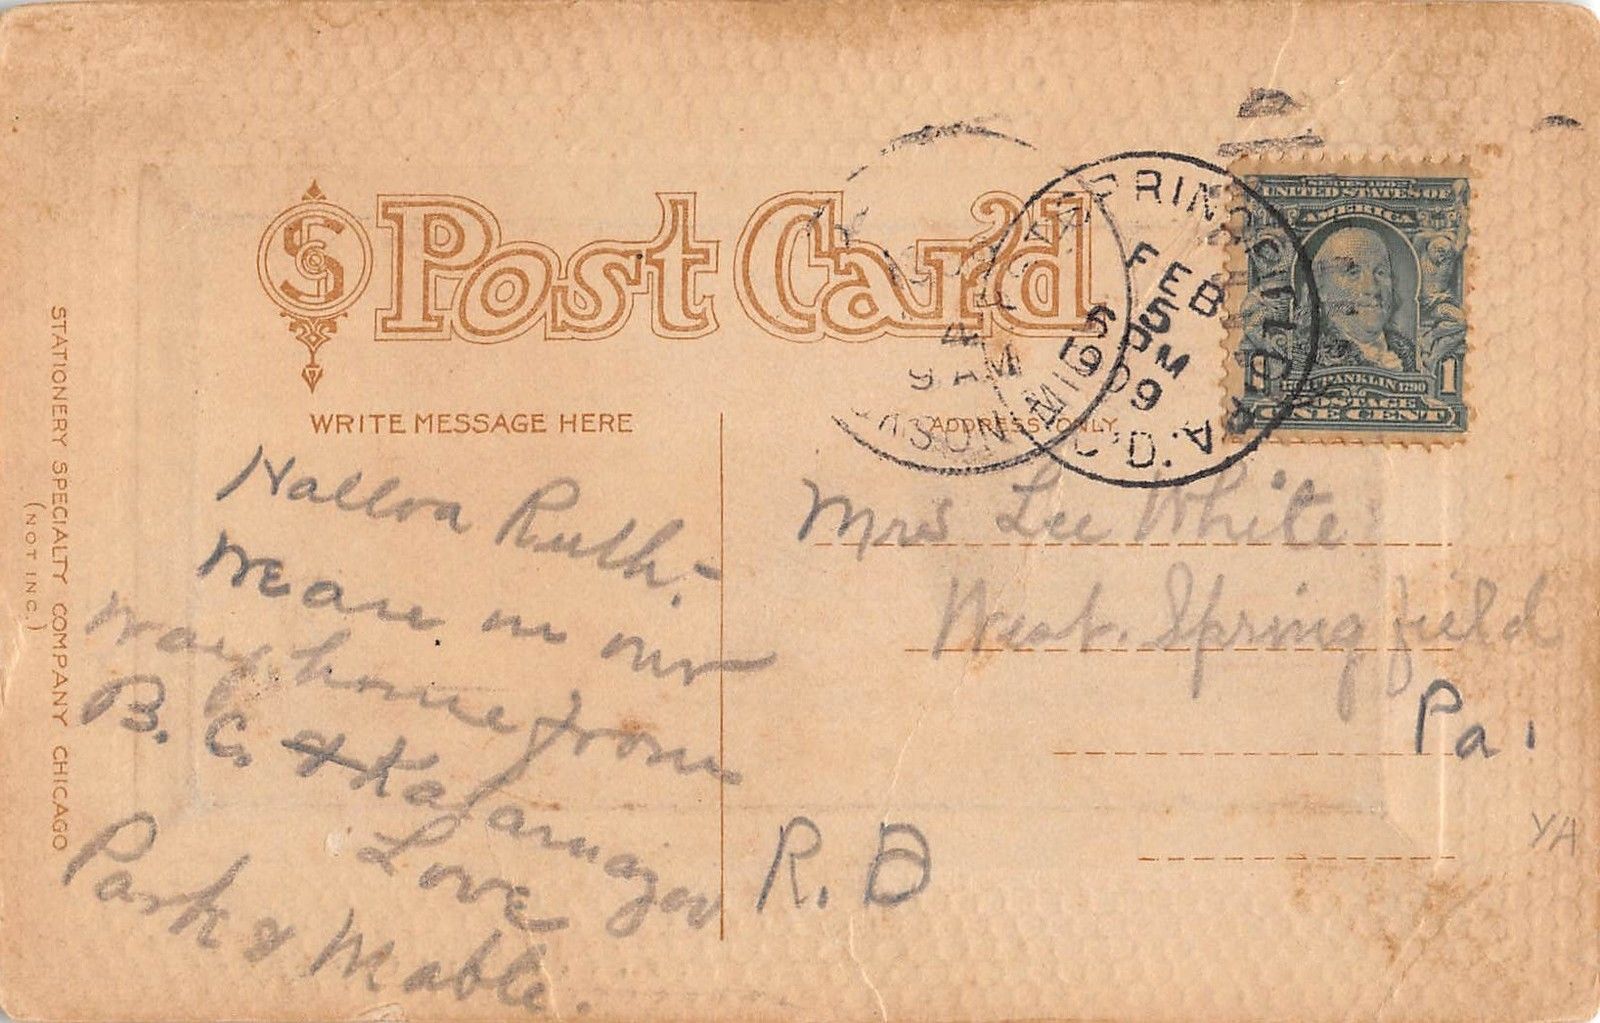 Post Card
WRITE MESSAGE HERE
ADDRESS ONLY
STATIONERY SPECIALTY COMPANY CHICAGO
(NOT INC.)
SERIES 1902
UNITED STATES OF
AMERICA
1
FRANKLIN 1790
POSTAGE
ONE CENT
FEB
5
5 PM
1909
REC'D. PA.
4
9 AM
MICH
Halloa Ruth:-
We are on our
way home from
B. C. & Kalamazoo
Love
Park & Mable.
Mrs Lee White
West. Springfield
Pa.
R. D
YA